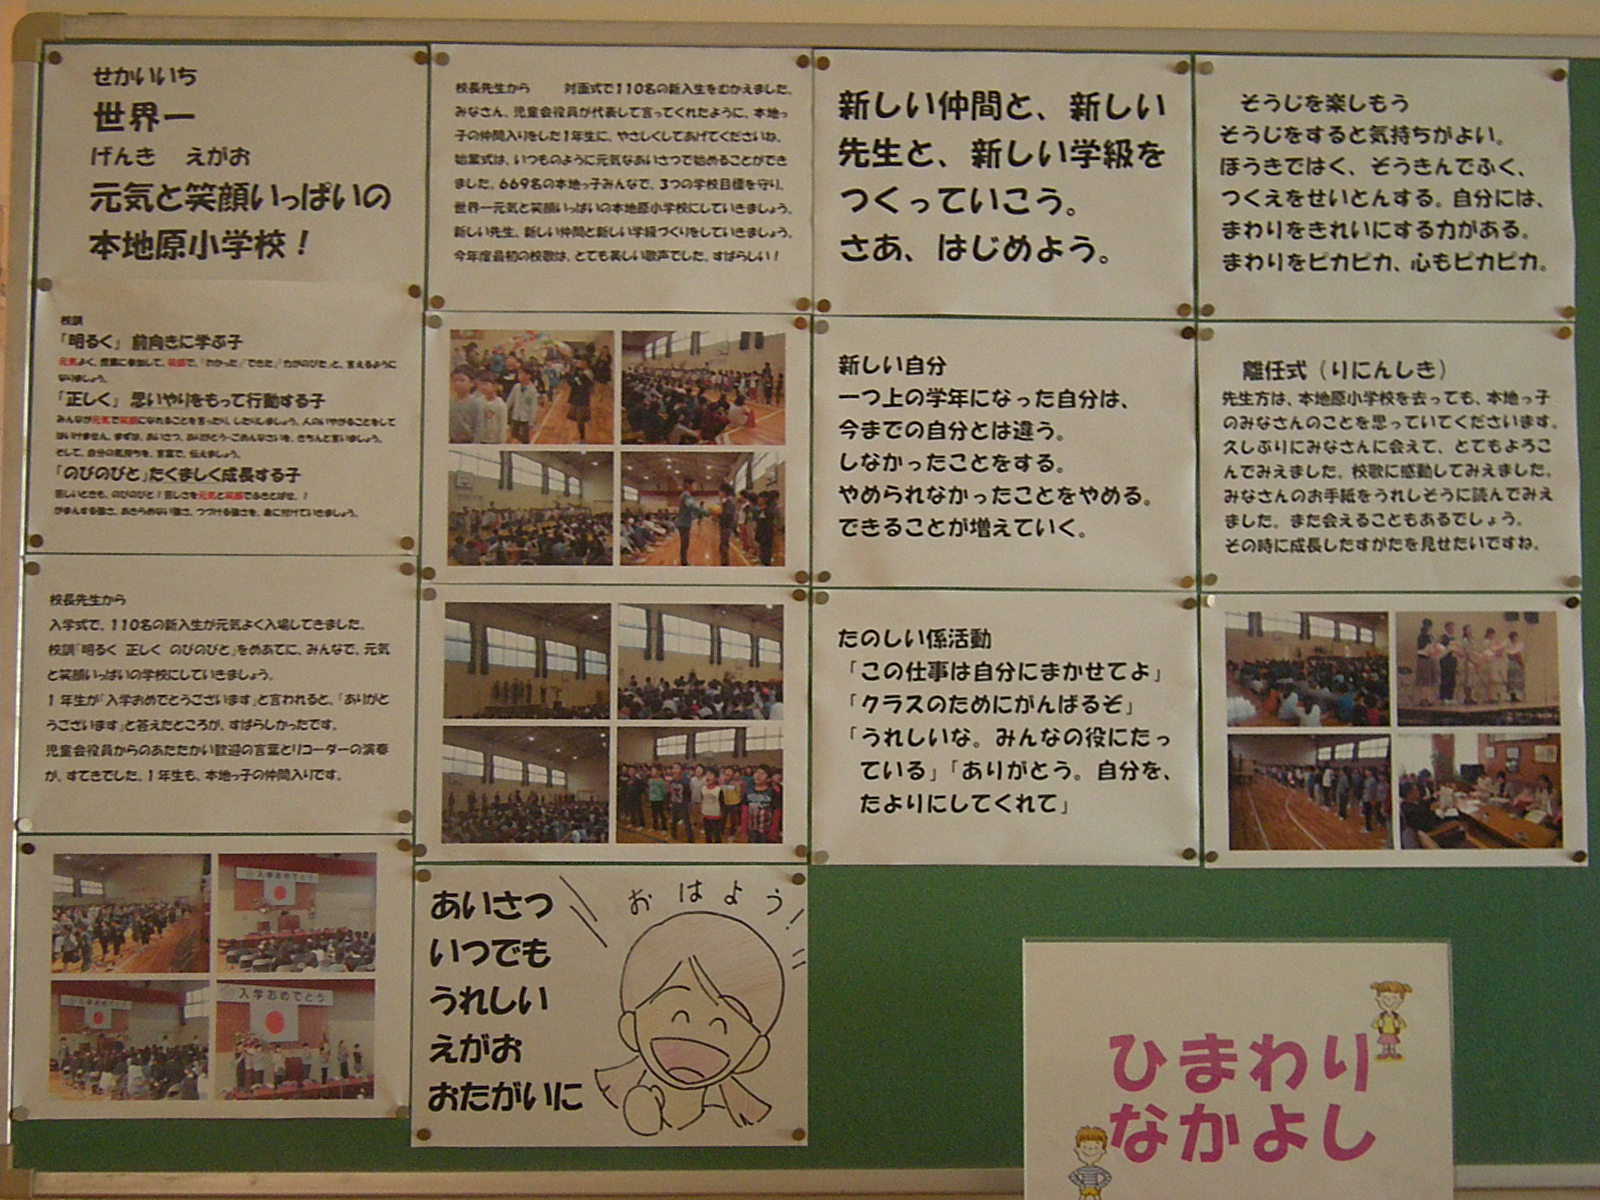 せかいいち
世界一
げんき えがお
元気と笑顔いっぱいの
本地原小学校！
校訓
「明るく」 前向きに学ぶ子
元気よく、授業に参加して、笑顔で、「わかった」「できた」「力がのびた」と、言えるように
なりましょう。
「正しく」 思いやりをもって行動する子
みんなが元気で笑顔になれることを言ったり、したりしましょう。人のいやがることをして
はいけません。まずは、あいさつ、ありがとう・ごめんなさいを、きちんと言いましょう。
そして、自分の気持ちを、言葉で、伝えましょう。
「のびのびと」たくましく成長する子
苦しいときも、のびのびと！苦しさを元気と笑顔でふきとばせ、！
がまんする強さ、あきらめない強さ、つづける強さを、身に付けていきましょう。
校長先生から
入学式で、110名の新入生が元気よく入場してきました。
校訓「明るく 正しく のびのびと」をめあてに、みんなで、元気
と笑顔いっぱいの学校にしていきましょう。
1年生が「入学おめでとうございます」と言われると、「ありがと
うございます」と答えたところが、すばらしかったです。
児童会役員からのあたたかい歓迎の言葉とリコーダーの演奏
が、すてきでした。1年生も、本地っ子の仲間入りです。
入学おめでとう
入学おめでとう
入学おめでとう
校長先生から 対面式で110名の新入生をむかえました。
みなさん、児童会役員が代表して言ってくれたように、本地っ
子の仲間入りをした1年生に、やさしくしてあげてくださいね。
始業式は、いつものように元気なあいさつで始めることができ
ました。669名の本地っ子みんなで、3つの学校目標を守り、
世界一元気と笑顔いっぱいの本地原小学校にしていきましょう。
新しい先生、新しい仲間と新しい学級づくりをしていきましょう。
今年度最初の校歌は、とても美しい歌声でした。すばらしい！
あいさつ
いつでも
うれしい
えがお
おたがいに
おはよう！
新しい仲間と、新しい
先生と、新しい学級を
つくっていこう。
さあ、はじめよう。
新しい自分
一つ上の学年になった自分は、
今までの自分とは違う。
しなかったことをする。
やめられなかったことをやめる。
できることが増えていく。
たのしい係活動
「この仕事は自分にまかせてよ」
「クラスのためにがんばるぞ」
「うれしいな。みんなの役にたっ
ている」「ありがとう。自分を、
たよりにしてくれて」
そうじを楽しもう
そうじをすると気持ちがよい。
ほうきではく、ぞうきんでふく、
つくえをせいとんする。自分には、
まわりをきれいにする力がある。
まわりをピカピカ、心もピカピカ。
離任式（りにんしき）
先生方は、本地原小学校を去っても、本地っ子
のみなさんのことを思っていてくださいます。
久しぶりにみなさんに会えて、とてもよろこ
んでみえました。校歌に感動してみえました。
みなさんのお手紙をうれしそうに読んでみえ
ました。また会えることもあるでしょう。
その時に成長したすがたを見せたいですね。
ひまわり
なかよし